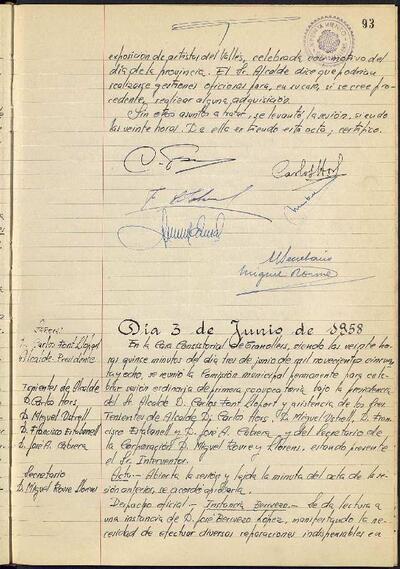 93
exposicion de artistas del Vallés, celebrada con motivo del
dia de la provincia. El Sr. Alcalde dice que podrian
realizarse gestiones oficiosas para, en su caso, si se cree pro-
cedente, realizar alguna adquisición.
Sin otros asuntos a tratar, se levantó la sesión, siendo
las veinte horas. De ella extiendo esta acta, certifico.
Carlos Hors
El Secretario
Miguel Roure
Dia 3 de Junio de 1958
Sres:
D. Carlos Font Llopart
Alcalde-Presidente
Tenientes de Alcalde
D. Carlos Hors
D. Miguel
D. Francisco Estabanell
D. José A. Cabrera
Secretario
D. Miguel Roure Llorens
En la Casa Consistorial de Granollers, siendo las veinte ho-
ras quince minutos del dia tres de junio de mil novecientos cincuen-
ta y ocho, se reunió la Comisión municipal permanente para cele-
brar sesión ordinaria de primera convocatoria, bajo la presidencia
del Sr. Alcalde D. Carlos Font Llopart y asistencia de los Sres.
Tenientes de Alcalde D. Carlos Hors, D. Miguel D. Francis-
co Estabanell y D. José A. Cabrera y del Secretario de
la Corporación D. Miguel Roure y Llorens, estando presente
el Sr. Interventor.
Acta - Abierta la sesión y leida la minuta del acta de la se-
sión anterior, se acordó aprobarla.
Despacho oficial - Instancia Berruezo - Se da lectura a
una instancia de D. José Berruezo López, manifestando la ne-
cesidad de efectuar diversas reparaciones indispensables en